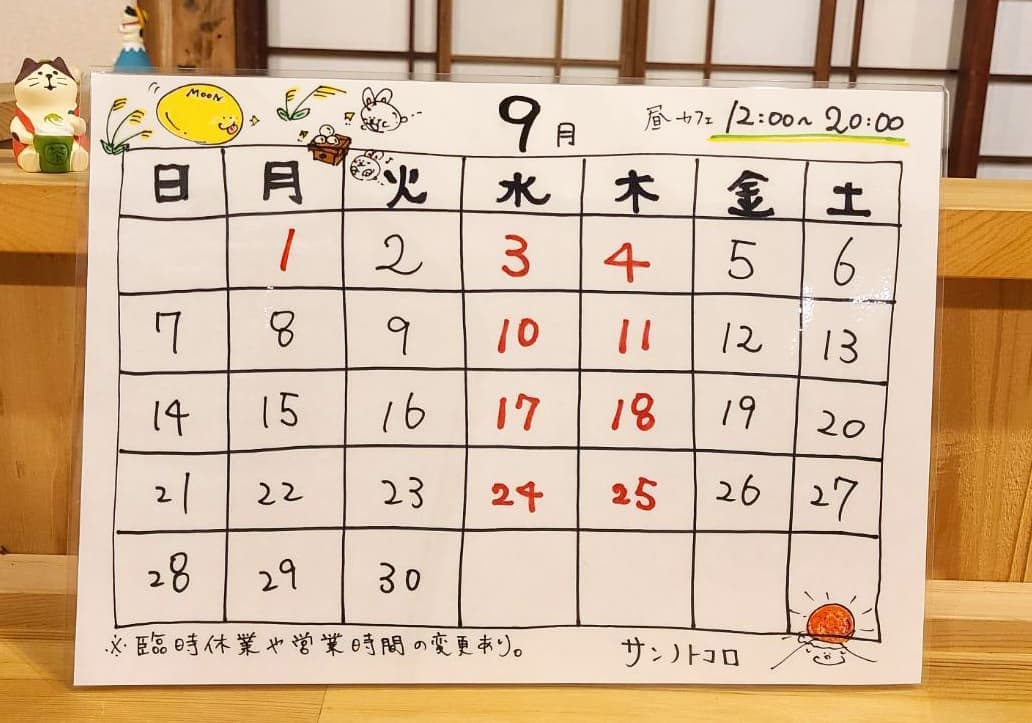 MOON
9月
昼カフェ 12:00~20:00
日 月 火 水 木 金 土
1 2 3 4 5 6
7 8 9 10 11 12 13
14 15 16 17 18 19 20
21 22 23 24 25 26 27
28 29 30
※臨時休業や営業時間の変更あり。
サンノトコロ